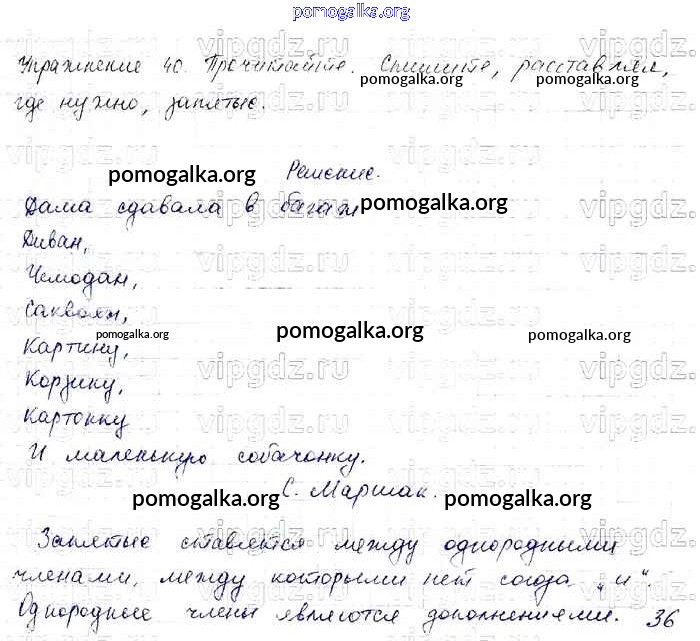 pomogalka.org
Упражнение 40. Прочитайте. Спишите, расставляя,
pomogalka.org pomogalka.org
где нужно, запятые.
Решение.
pomogalka.org
Дама сдавала в багаж
pomogalka.org
Диван,
Чемодан,
Саквояж,
pomogalka.org pomogalka.org pomogalka.org
Картину,
Корзину,
Картонку
И маленькую собачонку.
С. Маршак.
pomogalka.org pomogalka.org
Запятые ставятся между однородными
членами, между которыми нет союза „и“.
Однородные члены являются дополнениями. 36